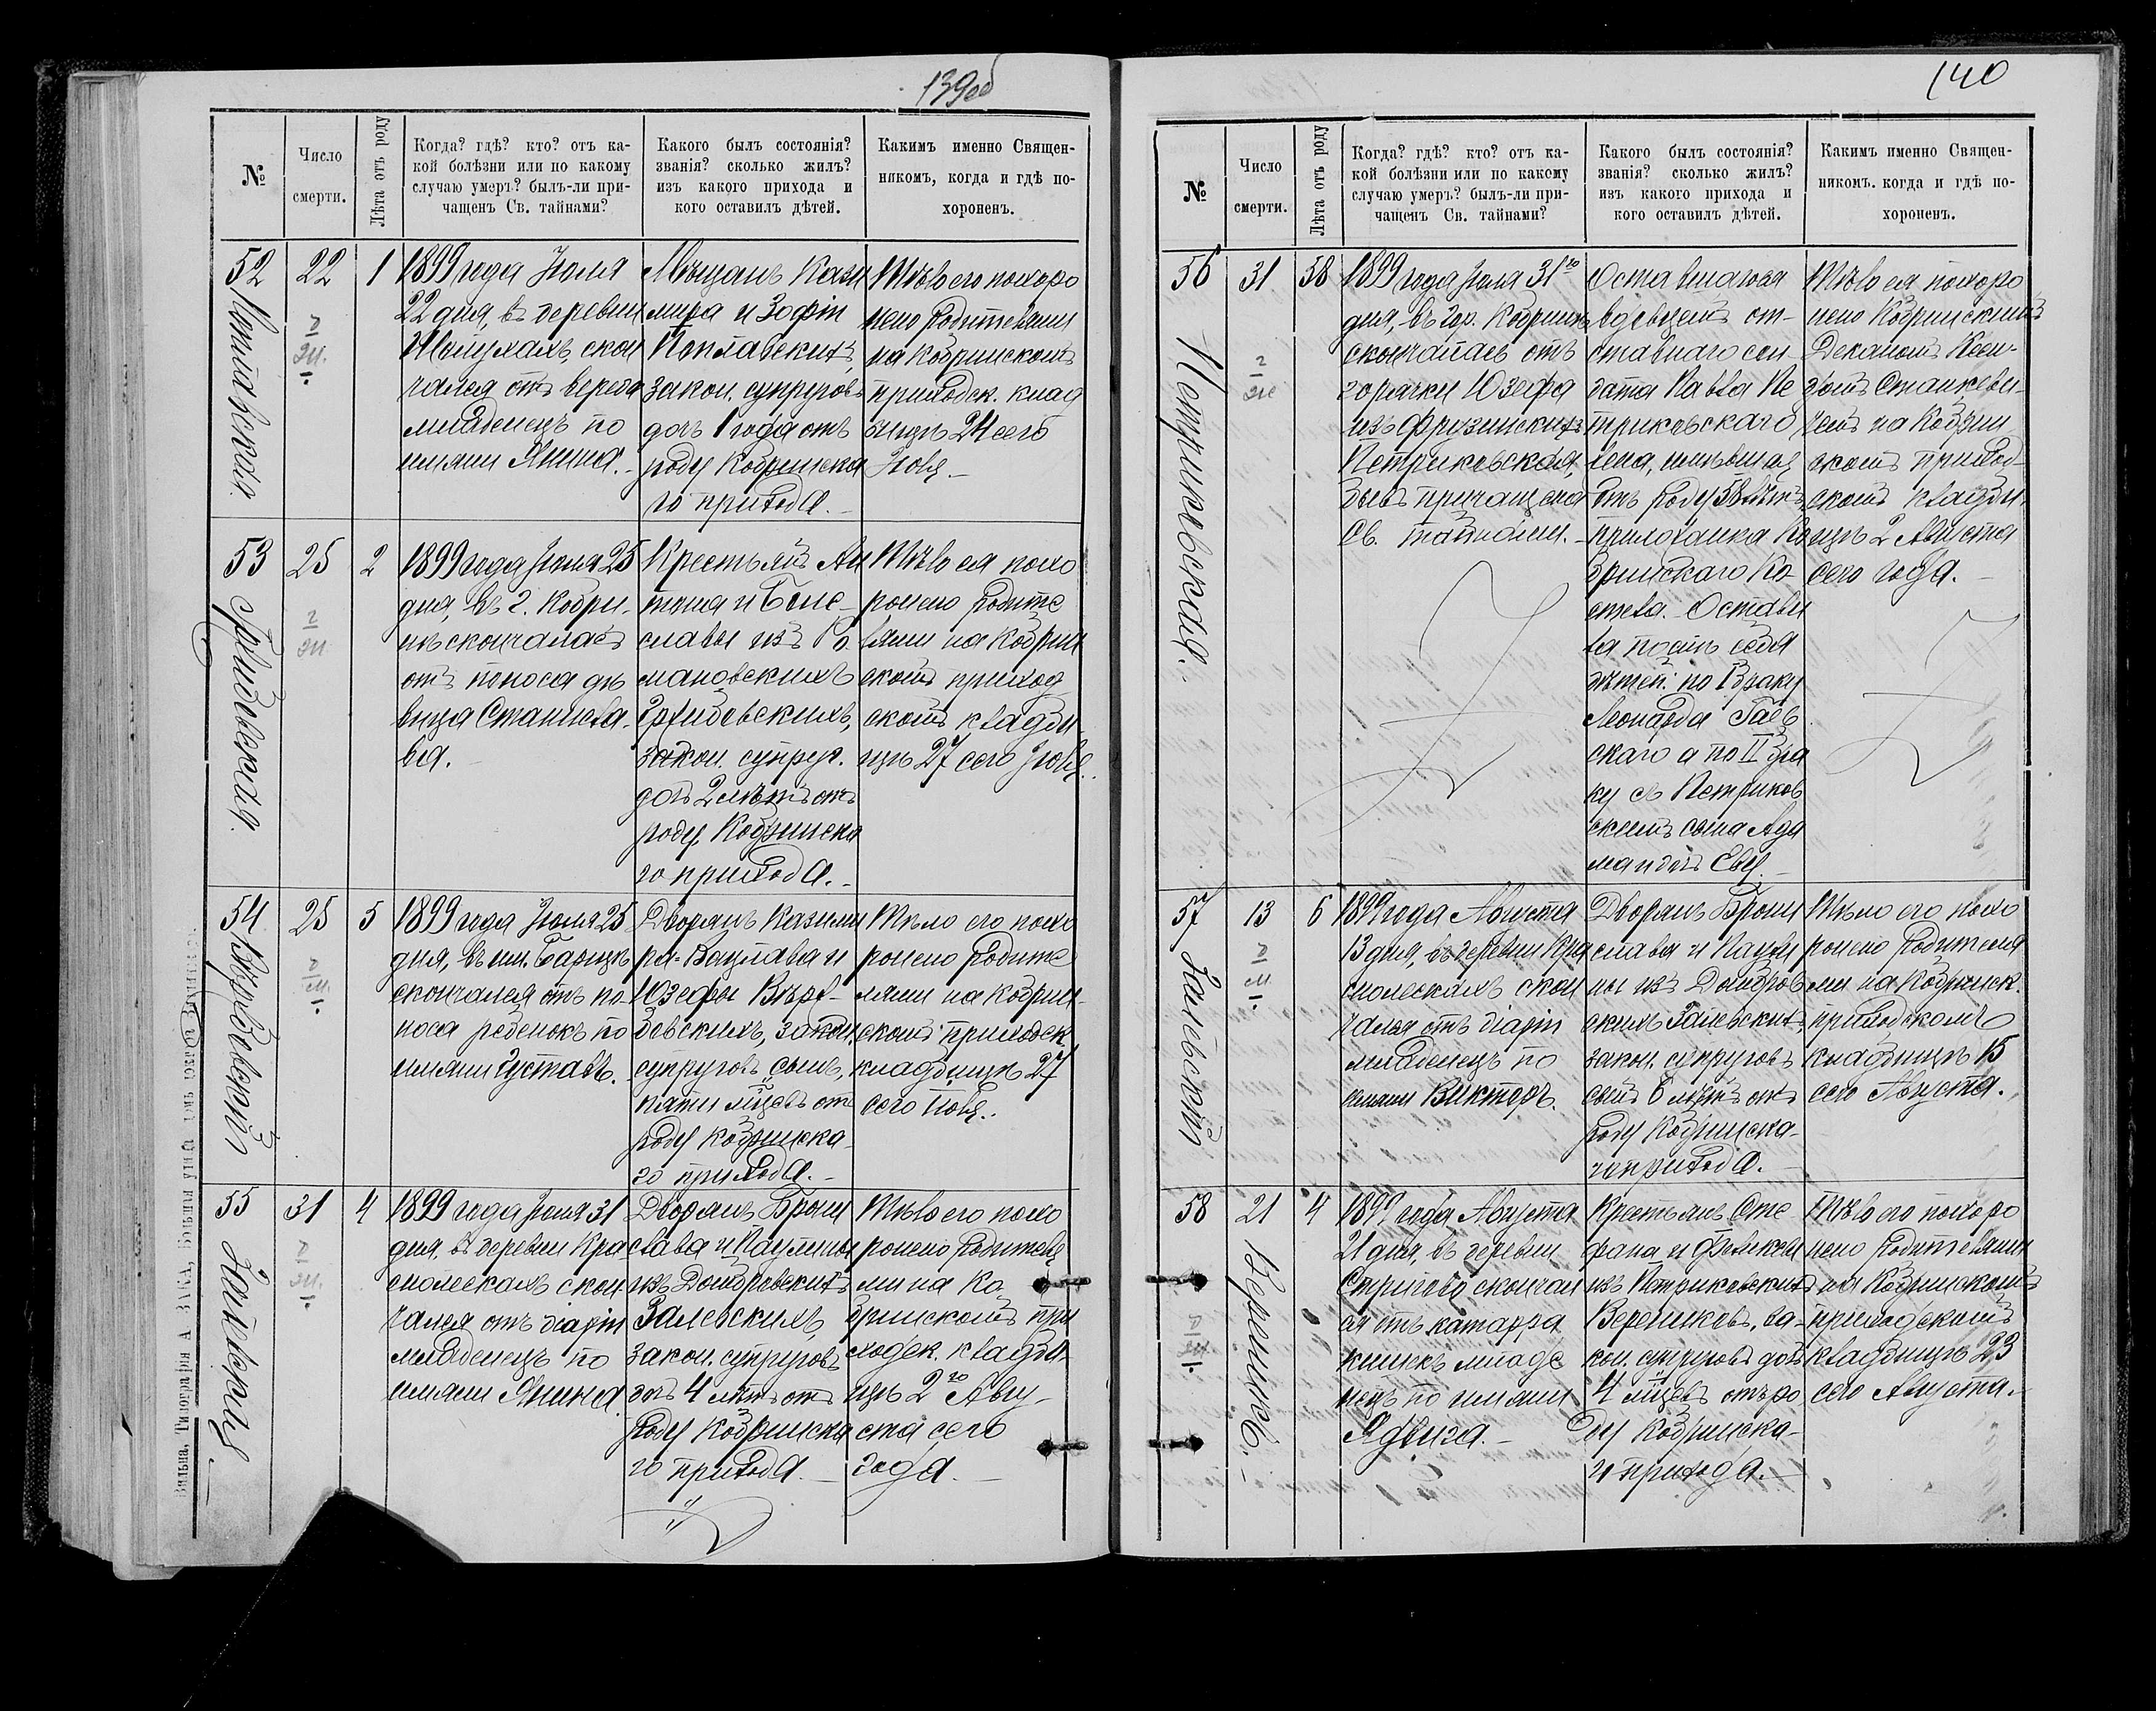 139об
№
Число
смерти.
Лѣта отъ роду
Когда? гдѣ? кто? отъ ка-
кой болѣзни или по какому
случаю умеръ? былъ-ли при-
чащенъ Св. тайнами?
Какого былъ состоянія?
званія? сколько жилъ?
изъ какого прихода и
кого оставилъ дѣтей.
Какимъ именно Священ-
никомъ, когда и гдѣ по-
хороненъ.
52
22
1
1899 года Іюля
22 дня, въ деревни
скон
чался отъ
младенецъ по
имени Янина.
Мѣщанъ Кази
мира и Зофіи
Поплавскихъ,
закон. супруговъ
дочь 1 года отъ
роду Кобринска
го прихода.
Тѣло его похоро
нено родителями
на Кобринскомъ
приходск. клад
бищѣ 24 сего
Іюля
53
Гридовская.
25
2
1899 года Іюля 25
дня, въ г. Кобри-
нѣ скончалась
отъ поноса дѣ
вица Станисла-
ва.
Крестьянъ Ан
тона и Боле-
славы изъ Ро-
мановскихъ
Гридовскихъ,
закон. супруг.
дочь 2 лѣтъ отъ
роду, Кобринска
го прихода.
Тѣло ея похо
ронено родите
лями на Кобрин
скомъ приход
скомъ кладби-
щѣ 27 сего Іюля.
54
25
5
1899 года Іюля 25
дня, въ им.
скончался отъ по-
носа ребенокъ по
имени Густавъ.
Дворянъ Казими
ра-Вацлава и
Юзефы
закон.
супруговъ сынъ,
пяти мѣс. отъ
роду Кобринска-
го прихода.
Тѣло его похо
ронено родите
лями на Кобрин-
скомъ приходск.
кладбищѣ 27
сего Іюля.
55
Залевская
31
4
1899 года Іюля 31
дня, въ деревни Кра
скон-
чался отъ діаріи
младенецъ по
имени Янина.
Дворянъ Брони
слава и Паулины
изъ Домбровскихъ
Залевскихъ,
закон. супруговъ
дочь 4 лѣтъ отъ
роду Кобринска
го прихода.
Тѣло его похо
ронено родителя
ми на Ко-
бринскомъ при
ходск. кладби-
щѣ 2го Авгу-
ста сего
года.
140
№
Число
смерти.
Лѣта отъ роду
Когда? гдѣ? кто? отъ ка-
кой болѣзни или по какому
случаю умеръ? былъ-ли при-
чащенъ Св. тайнами?
Какого былъ состоянія?
званія? сколько жилъ?
изъ какого прихода и
кого оставилъ дѣтей.
Какимъ именно Священ-
никомъ. когда и гдѣ по-
хороненъ.
56
Петриковская.
31
58
1899 года Іюля 31го
дня, въ гор. Кобринѣ
скончалась отъ
горячки Юзефа
изъ Фрузинскихъ
Петриковская,
бывъ причащена
Св. тайнами.
Оставшагося
вдовцемъ от-
ставного сол
дата Павла Пе
триковскаго
жена, имѣвшая
отъ роду 58 лѣтъ
прихожанка Ко
бринскаго Ко-
стела. Остави
ла послѣ себя
дѣтей: по I браку
Леонарда Гаев
скаго а по II бра
ку съ Петриков
скимъ сына Ада
ма и дочь Еву.
Тѣло ея похоро
нено Кобринскимъ
Деканомъ Ксен-
дзомъ Станкеви-
чемъ на Кобрин
скомъ приход-
скомъ кладби-
щѣ 2 Августа
сего года.
57
Залевскій
13
6
1899 года Августа
13 дня, въ деревни Кра
скон
чался отъ діаріи
младенецъ по
имени Викторъ.
Дворянъ Брони
слава и Паули
ны изъ Домбров
скихъ Залевскихъ,
закон. супруговъ
сынъ 6 лѣтъ отъ
роду Кобринска-
го прихода.
Тѣло его похо
ронено родителя
ми на Кобринск.
приходскомъ
кладбищѣ 15
сего Августа.
58
21
4
1899 года Августа
21 дня, въ деревни
Стригово скончал
ся отъ катарра
кишекъ младе
нецъ по имени
Ядвига.
Крестьянъ Сте
фана и Феликсы
изъ Петриковскихъ
за-
кон. супруговъ дочь
4 мѣс. отъ ро
ду Кобринска-
го прихода.
Тѣло его похоро
нено родителями
на Кобринскомъ
приходскомъ
кладбищѣ 23
сего Августа.